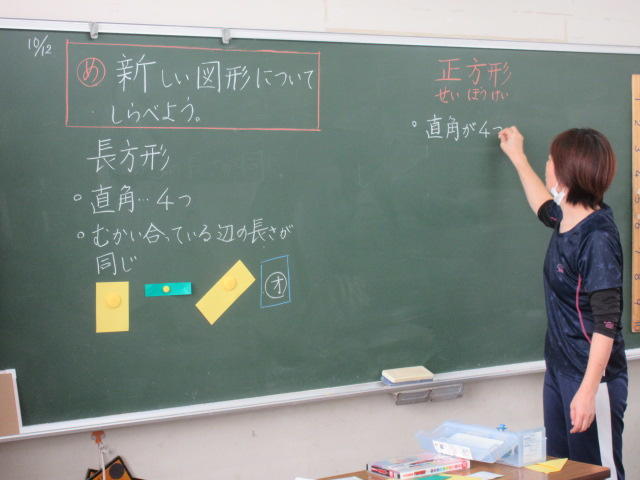 10/12
め 新しい図形について
しらべよう。
長方形
。直角…4つ
。むかい合っている辺の長さが
同じ
オ
正方形
せいほうけい
。直角が4つ